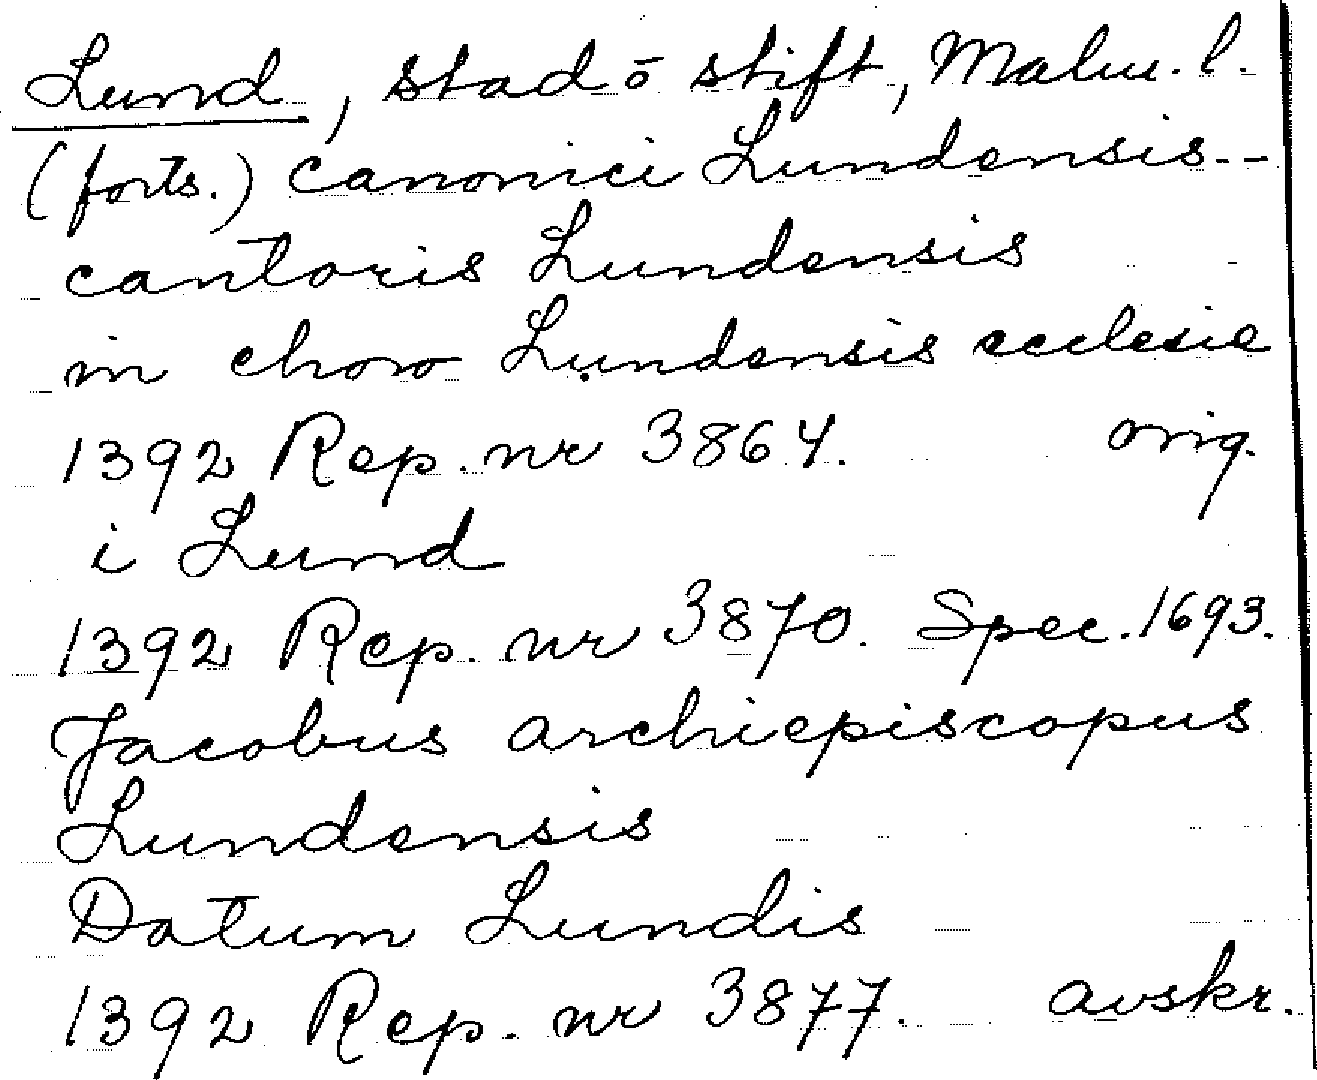 Lund, stad o stift, Malm. l.
(forts.) canonici Lundensis--
cantoris Lundensis
in choro Lundensis ecclesie
1392 Rep. nr 3864. orig.
i Lund
1392 Rep. nr 3870. Spec. 1693.
Jacobus archiepiscopus
Lundensis
Datum Lundis
1392 Rep. nr 3877. avskr.